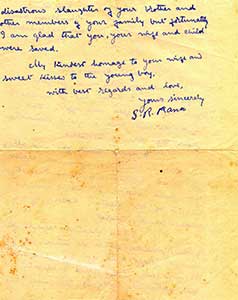 disastrous slaughter of your Mother and
other members of your family but fortunately
I am glad that you, your wife and child
were saved.
My kindest homage to your wife and
sweet kisses to the young boy,
with best regards and love,
yours sincerely
S. R. Rana